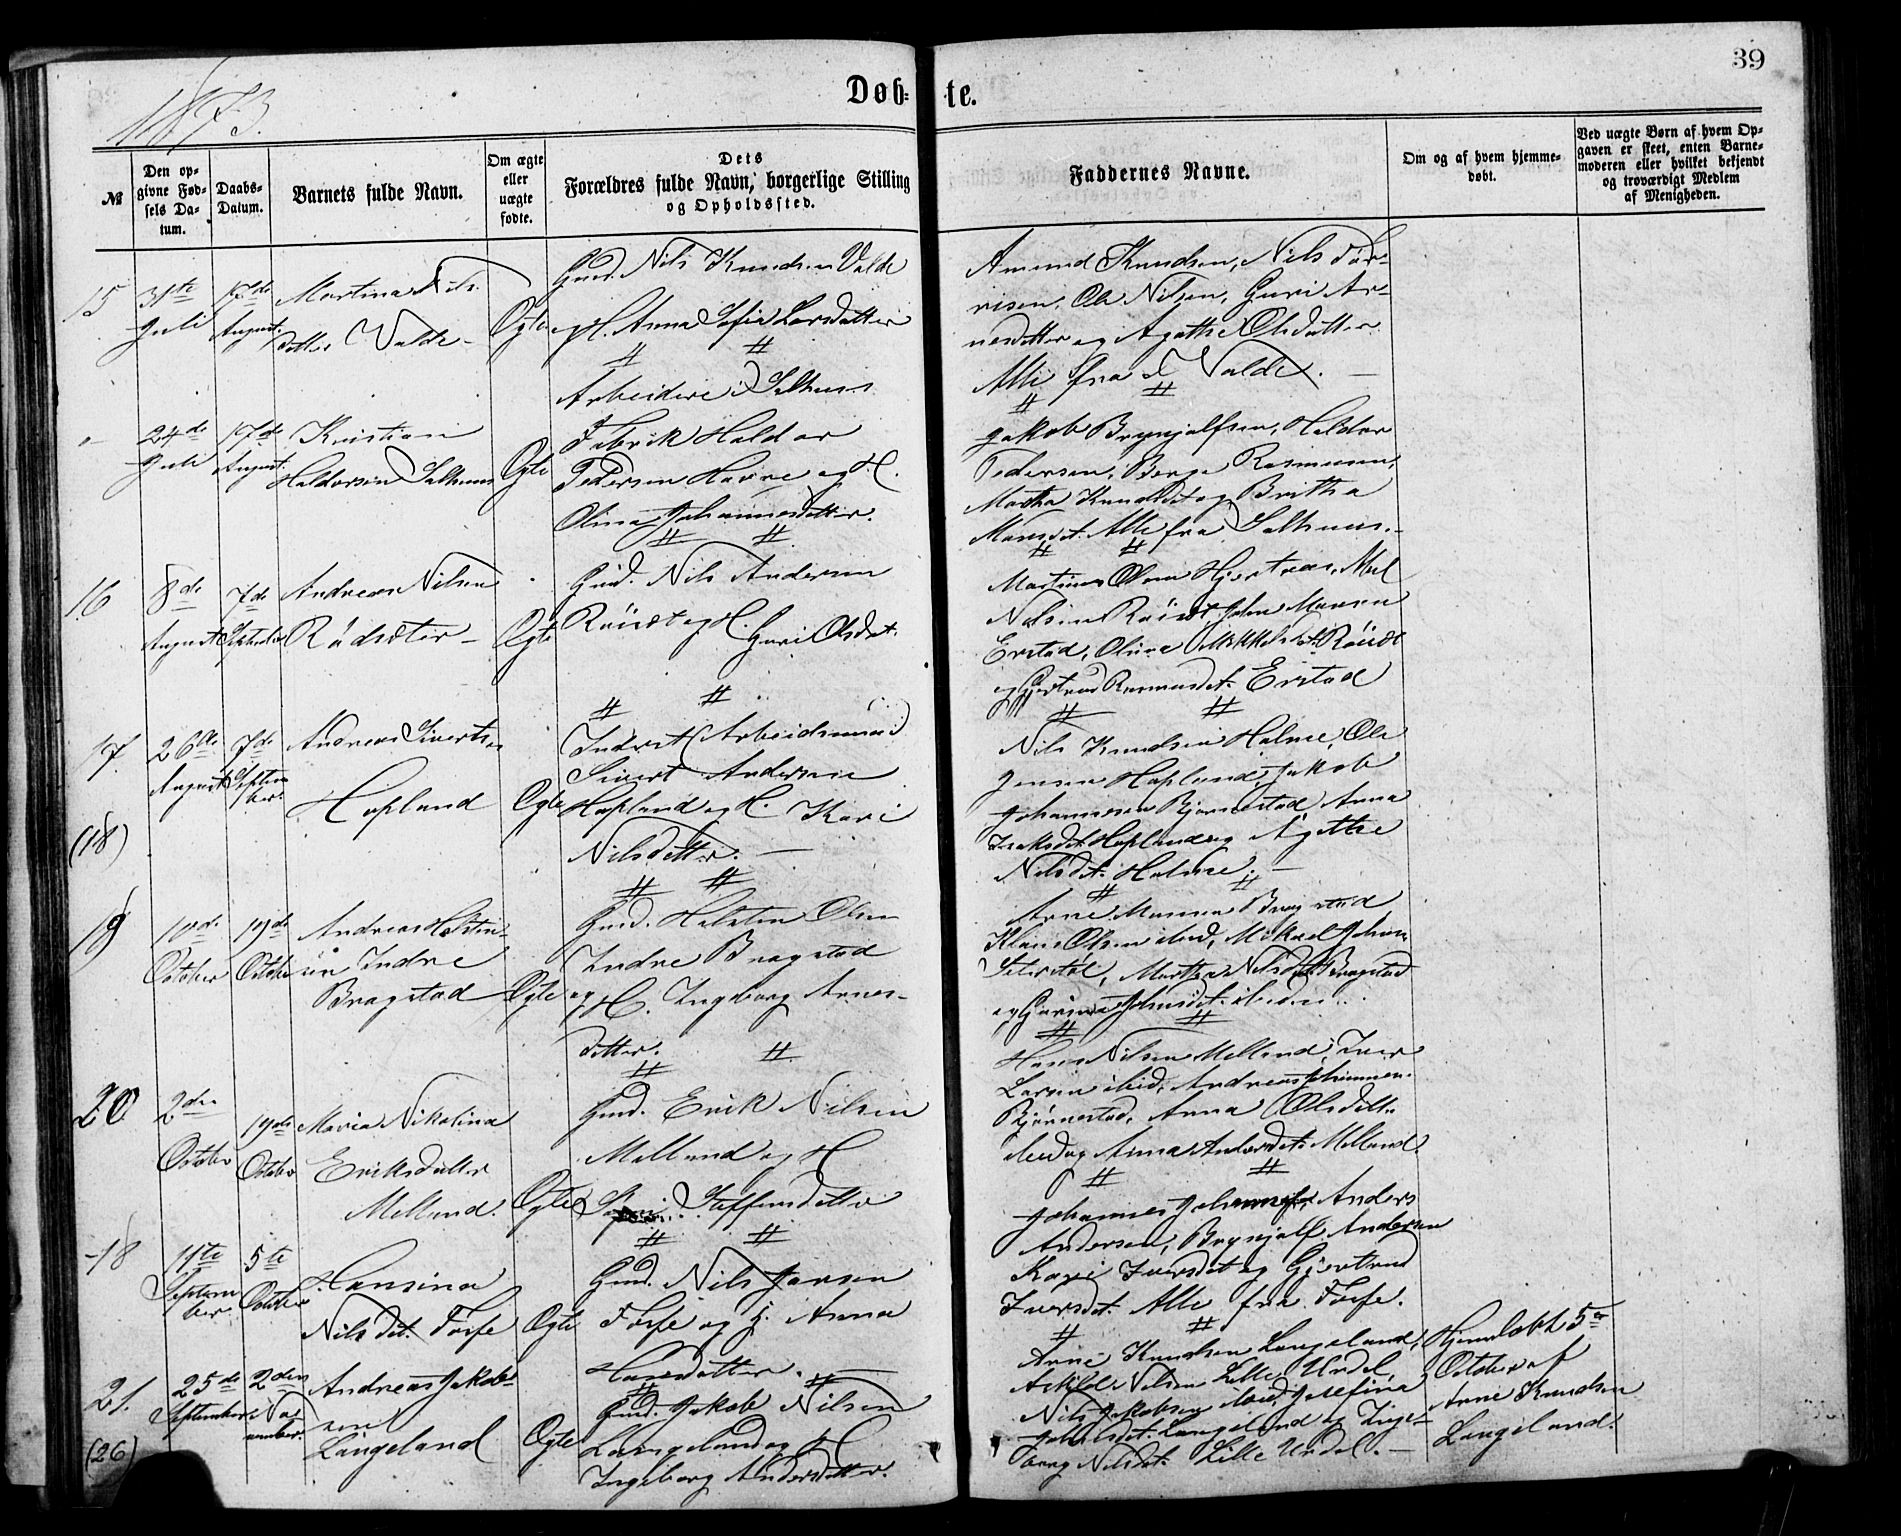 39
1873.
Døb- te.
№
Den opgivne Fødsels Datum.
Daabs-Datum.
Barnets fulde Navn.
Om ægte eller uægte fødte.
Dets Forældres fulde Navn, borgerlige Stilling og Opholdssted.
Faddernes Navne.
Om og af hvem hjemmedøbt.
Ved uægte Børn af hvem Opgaven er skeet, enten Barnemoderen eller hvilket bekjendt og troværdigt Medlem af Menigheden.
15
31te Juli
17de August
Martina Nilsdatter Valde
Ægte
Gmd. Nils Knudsen Valde
og H. Anna Sofia Larsdatter
Amund Knudsen, Nils
Ole Nilsen, Guri Ar-
nesdatter og Agathe Olsdatter
Alle fra Valde.
24de Juli
17de August
Kristian
Haldorsen Salhuus
Ægte
Arbeider i Salhuus
Fabrik Haldor
Pedersen Havre og H.
Olina Johannesdatter.
Jakob Brynjulfsen, Haldor
Pedersen, Berge Rasmusen,
Martha Knudsdt og Britha
Monsdt. Alle fra Salhuus.
16
8de August
7de September
Andreas Nilsen
Rødseter
Ægte
Gmd. Nils Andersen
og H. Guri Olsdt.
Martinus Olsen Hjertaas,
Nilsen John Monsen
Erstad, Olina Mikkelsdt.
og Gjertrud Rasmusdt. Erstad
17
26de August
7de September
Andreas Sivertsen
Hopland
Ægte
Inderst (Arbeidsmand)
Sivert Andersen
Hopland og H. Kari
Nilsdatter.
Nils Knudsen Holme, Ole
Jensen Hopland, Jakob
Johannesen Bjørnestad, Anna
Isaksdt. Hopland og Agathe
Nilsdt. Holme.
(18)
19
October
19de October
Andreas Helstein-
sen Indre
Bragstad
Ægte
Gmd. Helstein Olsen
Indre Bragstad
og H. Ingeborg Arnes-
datter.
Arne Monsen Bragstad
Klaus Olsen ibid, Mikael Johan.
Martha Nilsdt. Bragstad
og Johnsdt. ibidem.
20
2den October
19de October
Maria Nikolina
Eriksdatter
Melland.
Ægte
Gmd. Erik Nilsen
Melland og H
Steffensdatter
Hans Nilsen Melland, Iver
Larsen ibid, Andreas Johannesen
Bjørnestad, Anna Olsdatter
ibid og Anna Andersdt. Melland.
18
11te September
5te October
Hansina
Nilsdt. Fosse
Ægte
Gmd. Nils Jansen
Fosse og H. Anna
Hansdatter.
Johannes Anders
Andersen, Brynjulf Andersen
Kari Iversdt og Gjertrud
Iversdt. Alle fra Fosse.
21.
(26)
25de September
2den November
Andreas Jakob-
sen
Langeland
Ægte
Gmd. Jakob Nilsen
Langeland og H
Ingeborg Andersdatter.
Arne Knudsen Langeland,
Askild Nilsen Lille Urdal,
Nils Jakobsen ibid, Josefina
Langeland og Inge-
borg Nilsdt. Lille Urdal.
Hjemdøbt 5te
October af
Arne Knudsen
Langeland.